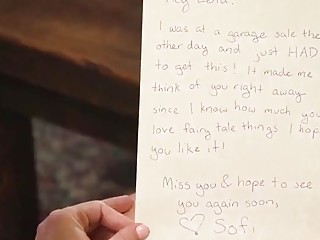 I was at a garage sale the
other day and just HAD
to get this! It made me
think of you right away
since I know how much you
love fairy tale things. I hop
you like it!
Miss you & hope to see
you again soon,
♡ Sofi